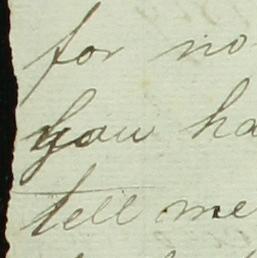 for no
you ha
tell me